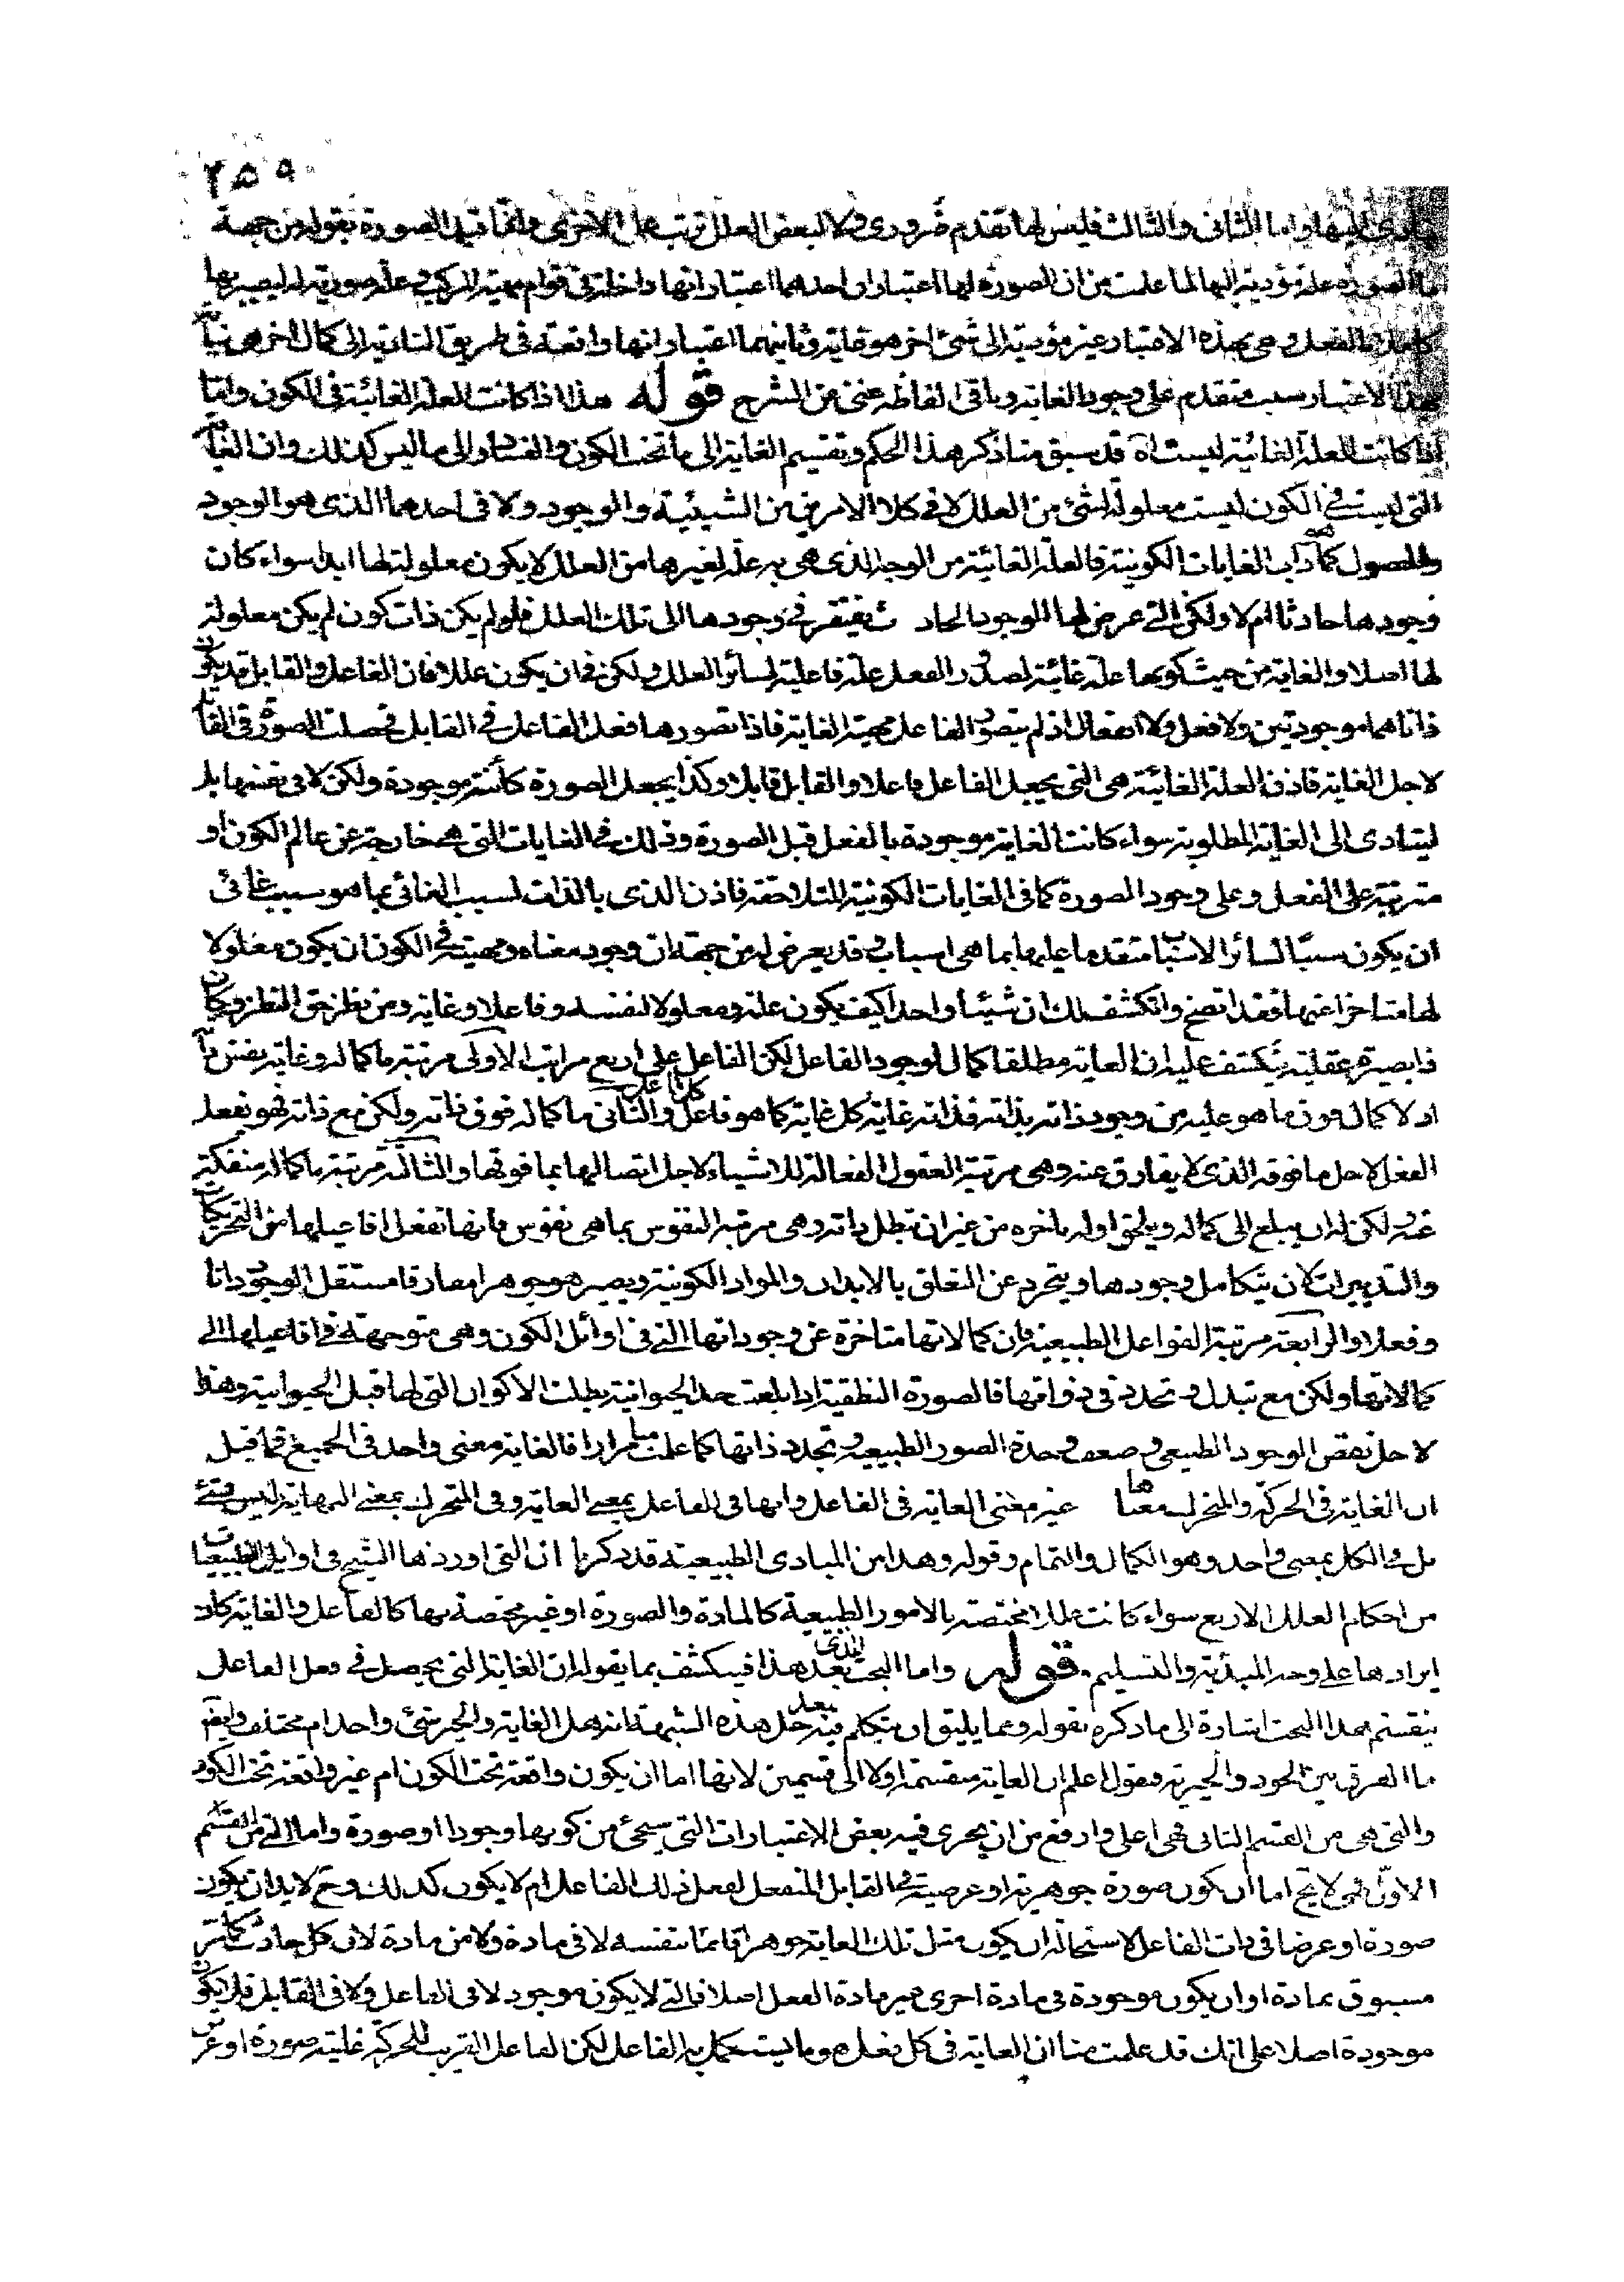 ٢٥٩
واما الثانى والثالث فليس لها تقدم ضرورى ولا لبعض العلل ترتب على الاخرى وانما قيد الصورة بقوله من جهة
الصورة علة مؤدية اليها لما علمت من ان الصورة لها اعتباران احدهما اعتبار انها داخلة فى قوام مهية المركب علة صورية له ليصير بها
بالفعل وهى بهذه الاعتبار غير مؤدية الى شئ اخر هو غاية وثانيهما اعتبار انها واقعة فى طريق التادية الى كمال اخر
الاعتبار سبب متقدم على وجود الغاية وباقى الفاظه غنى من الشرح قوله هذا اذا كانت العلة الغائية فى الكون واما
اذا كانت العلة الغائية ليست اه قد سبق منا ذكر هذا الحكم وتقسيم الغاية الى ما تحت الكون والفساد والى ما ليس كذلك وان الغاية
التى ليست فى الكون ليست معلولة لشئ من العلل لا فى كلا الامرين من الشيئية والوجود ولا فى احدهما الذى هو الوجود
والحصول كما هو داب الغايات الكونية فالعلة الغائية من الوجه الذى هى به علة لغيرها من العلل لا يكون معلولة لها ابدا سواء كان
وجودها حادثا ام لا ولكن التى عرض لها الوجود الحادث يفتقر فى وجودها الى تلك العلل فلو لم يكن ذات كون لم يكن معلولة
لها اصلا والغاية من حيث كونها علة غائية لصدور الفعل علة فاعلية لسائر العلل ولكن فى ان يكون عللا فان الفاعل والقابل قد يكون
ذاتاهما موجودتين ولا فعل ولا انفعال اذ لم يتصور الفاعل مهية الغاية فاذا تصورها فعل الفاعل فى القابل فحصلت الصورة فى القابل
لاجل الغاية فاذن العلة الغائية هى التى يجعل الفاعل فاعلا والقابل قابلا وكذا يجعل الصورة كائنة موجودة ولكن لا فى نفسها بل
ليتادى الى الغاية المطلوبة سواء كانت الغاية موجودة بالفعل قبل الصورة وذلك فى الغايات التى هى خارجة عن عالم الكون او
مترتبة على الفعل وعلى وجود الصورة كما فى الغايات الكونية المتلاحقة فاذن الذى بالذات لسبب الغائى بما هو سبب غائى
ان يكون سببا لسائر الاسباب متقدما عليها بما هى اسباب وقد يعرض له من جهة ان وجود معناه ومهيته فى الكون ان يكون معلولا
لها متاخرا عنها فقد اتضح وانكشف لك ان شيئا واحدا كيف يكون علة ومعلولا لنفسه وفاعلا وغاية ومن نظر حق النظر وكان
ذا بصيرة عقلية يكشف عليه ان الغاية مطلقا كمال لوجود الفاعل لكن الفاعل على اربع مراتب الاولى مرتبة ما كماله وغايته نفس ذاته
اذ لا كمال فوق ما هو عليه من وجود ذاته بذاته فذاته غاية كل غاية كما هو فاعل كل فاعل والثانى ما كماله فوق ذاته ولكن مع ذاته فهو يفعل
الفعل لاجل ما فوقه الذى لا يفارق عنه وهى مرتبة العقول الفعالة للاشياء لاجل اتصالها بما فوقها والثالثة مرتبة ما كماله منفكة
عنه لكن له ان يبلغ الى كماله ويلحق اوله باخره من غير ان تبطل ذاته وهى مرتبة النفوس بما هى نفوس فانها تفعل افاعيلها من التحريكات
والتدبيرات لان يتكامل وجودها ويتجرد عن التعلق بالابدان والمواد الكونية ويصير هو جوهرا مفارقا مستقل الوجود ذاتا
وفعلا والرابعة مرتبة الفواعل الطبيعية فان كمالاتها متاخرة عن وجوداتها التى فى اوائل الكون وهى متوجهة فى افاعيلها الى
كمالاتها ولكن مع تبدل وتجدد فى ذواتها فالصورة النطفية اذا بلغت حد الحيوانية بطلت الاكوان التى لها قبل الحيوانية وهذا
لاجل نقص الوجود الطبيعى وضعف وحدة الصور الطبيعية وتجدد ذاتها كما علمت منا مرارا فالغاية معنى واحد فى الجميع فما قيل
ان الغاية فى الحركة والمتحرك معناها غير معنى الغاية فى الفاعل وانها فى الفاعل بمعنى الغاية وفى المتحرك بمعنى النهاية ليس بشئ
بل فى الكل بمعنى واحد وهو الكمال والتمام وقوله وهذا من المبادى الطبيعية قد ذكرنا ان التى اوردها الشيخ فى اوايل الطبيعيات
من احكام العلل الاربع سواء كانت عللا مختصة بالامور الطبيعية كالمادة والصورة او غير مختصة بها كالفاعل والغاية كان
ايرادها على وجه المبدئية والتسليم قوله واما البحث الذى بعد هذا فيكشف بما يقوله ان الغاية التى يحصل فى فعل الفاعل
ينقسم هذا البحث اشارة الى ما ذكره بقوله ومما يليق ان يتكلم فيه بعد حل هذه الشبهة انه هل الغاية والخير شئ واحد ام مختلف وايضا
ما الفرق بين الجود والخيرية فنقول اعلم ان الغاية منقسمة اولا الى قسمين لانها اما ان يكون واقعة تحت الكون ام غير واقعة تحت الكون
والتى هى من القسم الثانى فهى اعلى وارفع من ان يجرى فيه بعض الاعتبارات التى سيجئ من كونها وجودا او صورة واما التى من القسم
الاول فهى لا يخ اما ان يكون صورة جوهرية او عرضية فى القابل المنفعل لفعل ذلك الفاعل ام لا يكون كذلك وح لا بد ان يكون
صورة او عرضا فى ذات الفاعل لاستحالة ان يكون مثل تلك الغاية جوهرا قائما بنفسه لا فى مادة ولا من مادة لان كل حادث
مسبوق بمادة او ان يكون موجودة فى مادة اخرى غير مادة الفعل اصلا فالتى لا يكون موجود لا فى الفاعل ولا فى القابل فلا يكون
موجودة اصلا على انك قد علمت منا ان الغاية فى كل فعل هو ما يستكمل به الفاعل لكن الفاعل القريب للحركة غايته صورة او عرض